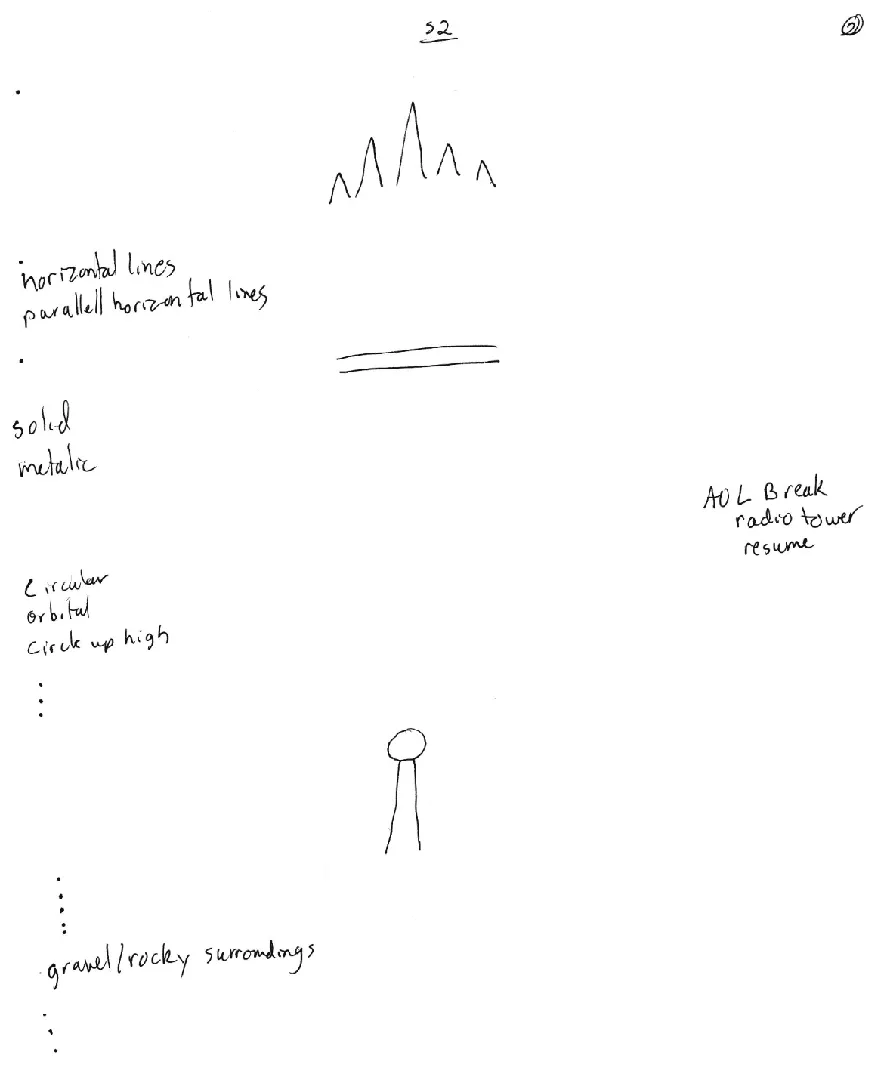 S2
2
horizontal lines
parallell horizontal lines
solid
metalic
AOL Break
radio tower
resume
Circular
orbital
Circle up high
gravel/rocky surroundings